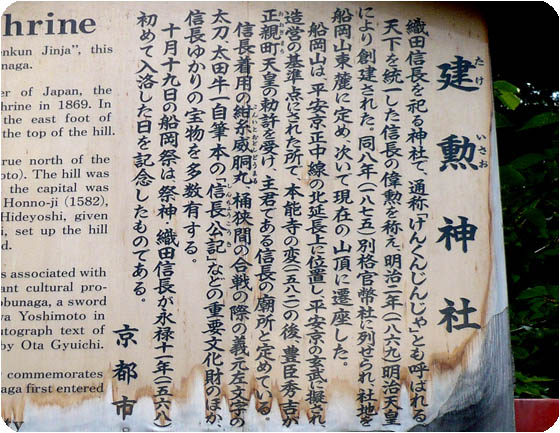 建勲神社
たけ いさお
織田信長を祀る神社で、通称「けんくんじんじゃ」とも呼ばれる。
天下を統一した信長の偉勲を称え、明治二年(一八六九)明治天皇
により創建された。同八年(一八七五)別格官幣社に列せられ、社地を
船岡山東麓に定め、次いで現在の山頂に遷座した。
船岡山は、平安京正中線の北延長上に位置し、平安京の玄武に擬され
造営の基準点にされた所で、本能寺の変(一五八二)の後、豊臣秀吉が
正親町天皇の勅許を受け、主君である信長の廟所と定めている。
信長着用の紺糸威胴丸、桶狭間の合戦の際の義元左文字の
太刀、太田牛一自筆本の「信長公記」などの重要文化財のほか、
信長ゆかりの宝物を多数有する。
十月十九日の船岡祭は、祭神・織田信長が永禄十一年(一五六八)
初めて入洛した日を記念したものである。
京都市
hrine
enkun Jinja", this
unaga.
er of Japan, the
hrine in 1869. In
he east foot of
the top of the hill.
rue north of the
oto). The hill was
the capital was
Honno-ji (1582),
Hideyoshi, given
, set up the hill
d.
s associated with
ant cultural pro-
obunaga, a sword
wa Yoshimoto in
utograph text of
by Ota Gyuichi.
commemorates
aga first entered